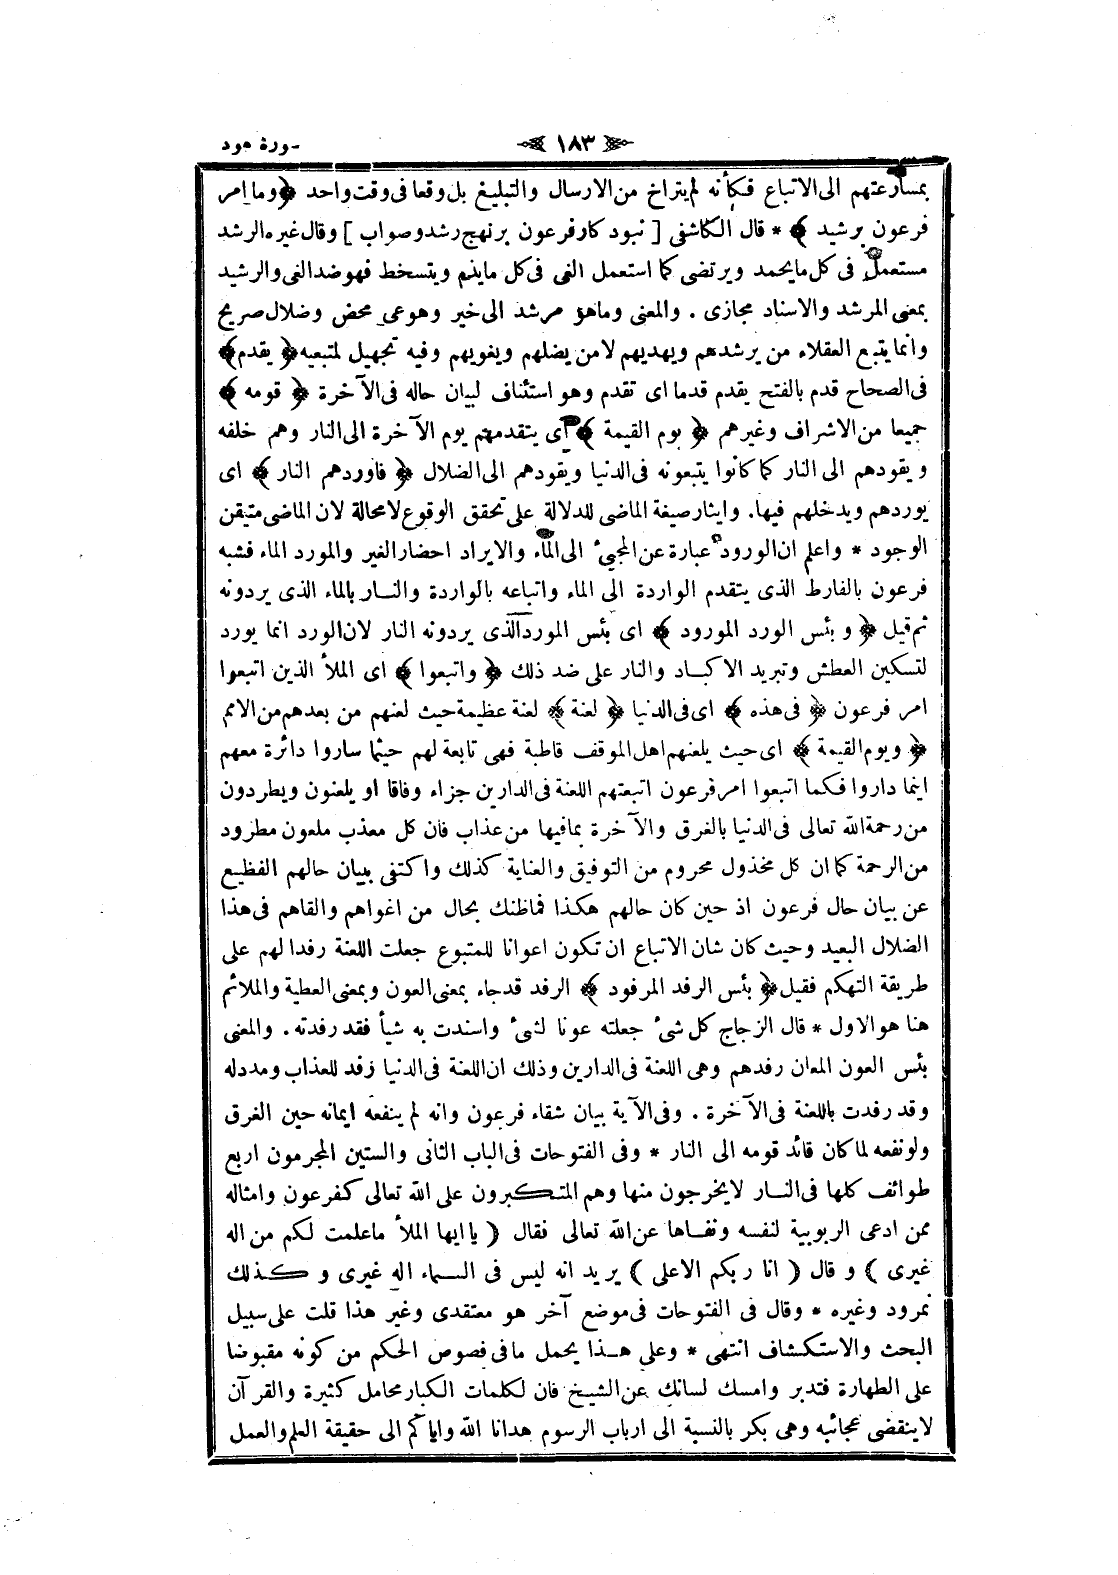 سورة هود
﴿ ١٨٣ ﴾
بمسارعتهم الى الاتباع فكأنه لم يتراخ من الارسال والتبليغ بل وقعا فى وقت واحد ﴿ وما امر
فرعون برشيد ﴾ * قال الكاشفى [ نبود كار فرعون برنهج رشد وصواب ] وقال غيره الرشد
مستعمل فى كل ما يحمد ويرتضى كما استعمل الغى فى كل ما يذم ويتسخط فهو ضد الغى والرشيد
بمعنى المرشد والاسناد مجازى . والمعنى وما هو مرشد الى خير وهو غى محض وضلال صريح
وانما يتبع العقلاء من يرشدهم ويهديهم لا من يضلهم ويغويهم وفيه تجهيل لمتبعيه ﴿ يقدم ﴾
فى الصحاح قدم بالفتح يقدم قدما اى تقدم وهو استئناف لبيان حاله فى الآخرة ﴿ قومه ﴾
جميعا من الاشراف وغيرهم ﴿ يوم القيمة ﴾ اى يتقدمهم يوم الآخرة الى النار وهم خلفه
ويقودهم الى النار كما كانوا يتبعونه فى الدنيا ويقودهم الى الضلال ﴿ فاوردهم النار ﴾ اى
يوردهم ويدخلهم فيها . وايثار صيغة الماضى للدلالة على تحقق الوقوع لا محالة لان الماضى متيقن
الوجود * واعلم ان الورود عبارة عن المجيئ الى الماء والايراد احضار الغير والمورد الماء فشبه
فرعون بالفارط الذى يتقدم الواردة الى الماء واتباعه بالواردة والنار بالماء الذى يردونه
ثم قيل ﴿ و بئس الورد المورود ﴾ اى بئس المورد الذى يردونه النار لان الورد انما يورد
لتسكين العطش وتبريد الاكباد والنار على ضد ذلك ﴿ واتبعوا ﴾ اى الملأ الذين اتبعوا
امر فرعون ﴿ فى هذه ﴾ اى فى الدنيا ﴿ لعنة ﴾ لعنة عظيمة حيث لعنهم من بعدهم من الامم
﴿ ويوم القيمة ﴾ اى حيث يلعنهم اهل الموقف قاطبة فهى تابعة لهم حيثما ساروا دائرة معهم
اينما داروا فكما اتبعوا امر فرعون اتبعتهم اللعنة فى الدارين جزاء وفاقا او يلعنون ويطردون
من رحمة الله تعالى فى الدنيا بالغرق والآخرة بما فيها من عذاب فان كل معذب ملعون مطرود
من الرحمة كما ان كل مخذول محروم من التوفيق والعناية كذلك واكتفى ببيان حالهم الفظيع
عن بيان حال فرعون اذ حين كان حالهم هكذا فماظنك بحال من اغواهم والقاهم فى هذا
الضلال البعيد وحيث كان شان الاتباع ان تكون اعوانا للمتبوع جعلت اللعنة رفدا لهم على
طريقة التهكم فقيل ﴿ بئس الرفد المرفود ﴾ الرفد قدجاء بمعنى العون وبمعنى العطية والملائم
هنا هو الاول * قال الزجاج كل شئ جعلته عونا لشئ واسندت به شيأ فقد رفدته . والمعنى
بئس العون المعان رفدهم وهى اللعنة فى الدارين وذلك ان اللعنة فى الدنيا رفد للعذاب ومدد له
وقد رفدت باللعنة فى الآخرة . وفى الآية بيان شقاء فرعون وانه لم ينفعه ايمانه حين الغرق
ولو نفعه لما كان قائد قومه الى النار * وفى الفتوحات فى الباب الثانى والستين المجرمون اربع
طوائف كلها فى النار لا يخرجون منها وهم المتكبرون على الله تعالى كفرعون وامثاله
ممن ادعى الربوبية لنفسه ونفاها عن الله تعالى فقال ( يا ايها الملأ ما علمت لكم من اله
غيرى ) و قال ( انا ربكم الاعلى ) يريد انه ليس فى السماء اله غيرى و كذلك
نمرود وغيره * وقال فى الفتوحات فى موضع آخر هو معتقدى وغير هذا قلت على سبيل
البحث والاستكشاف انتهى * وعلى هذا يحمل ما فى فصوص الحكم من كونه مقبوضا
على الطهارة فتدبر وامسك لسانك عن الشيخ فان لكلمات الكبار محامل كثيرة والقرآن
لا ينقضى عجائبه وهى بكر بالنسبة الى ارباب الرسوم هدانا الله واياكم الى حقيقة العلم والعمل